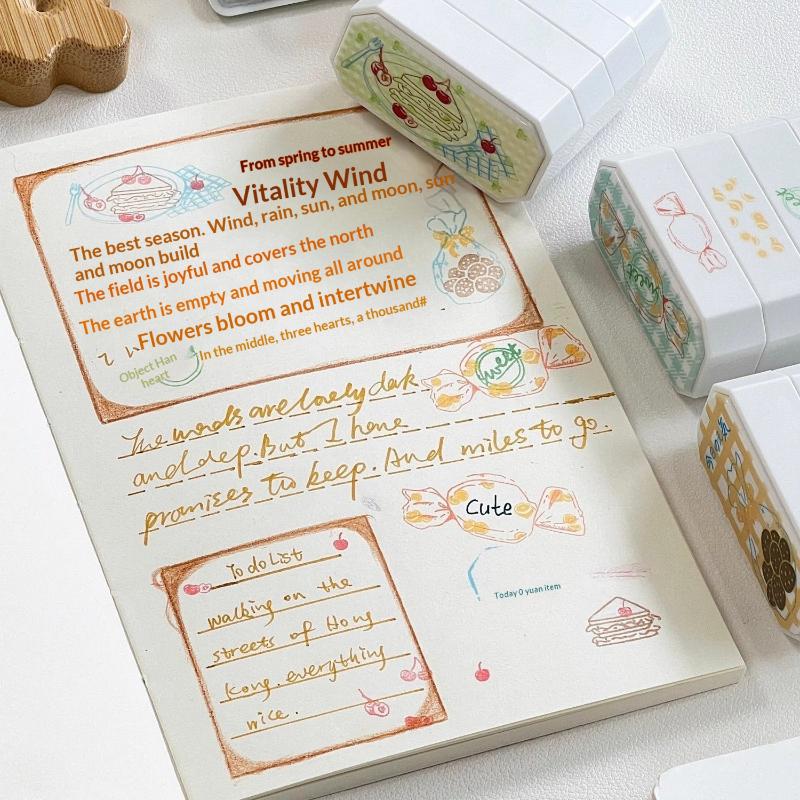 From spring to summer
Vitality Wind
The best season. Wind, rain, sun, and moon, sun
and moon build
The field is joyful and covers the north
The earth is empty and moving all around
Flowers bloom and intertwine
Object Han
heart
In the middle, three hearts, a thousand#
sweet
The words are lovely dark
and dep. But I have
promises to keep. And miles to go.
Cute
To do List
walking on the
streets of Hong
Kong. everything
nice.
Today 0 yuan item
sweet